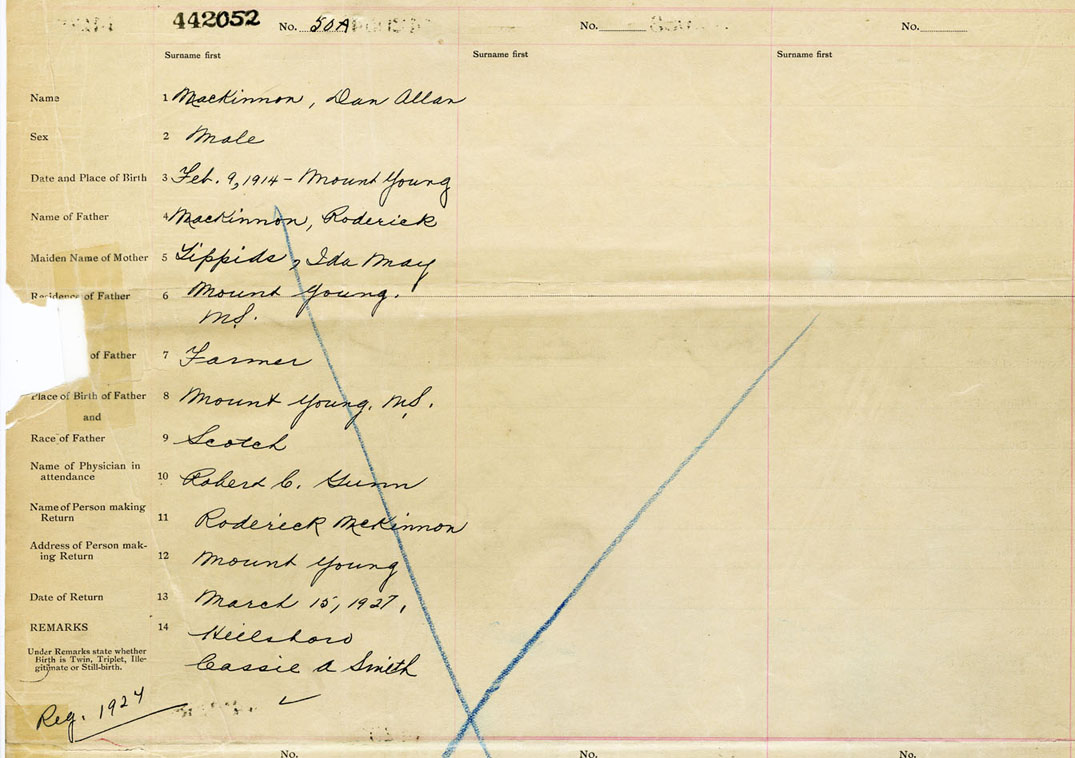 442052 No. 50A No. No.
Surname first Surname first Surname first
Name 1 MacKinnon, Dan Allan
Sex 2 Male
Date and Place of Birth 3 Feb. 9, 1914 - Mount Young
Name of Father 4 MacKinnon, Roderick
Maiden Name of Mother 5 Tippids, Ida May
Residence of Father 6 Mount Young.
M.S.
of Father 7 Farmer
Place of Birth of Father 8 Mount Young. M.S.
and
Race of Father 9 Scotch
Name of Physician in
attendance 10 Robert C. Gunn
Name of Person making
Return 11 Roderick McKinnon
Address of Person mak-
ing Return 12 Mount Young
Date of Return 13 March 15, 1927.
REMARKS 14 Hillsboro
Under Remarks state whether
Birth is Twin, Triplet, Ille-
gitimate or Still-birth.
Cassie A Smith
Reg. 1924
No. No. No.